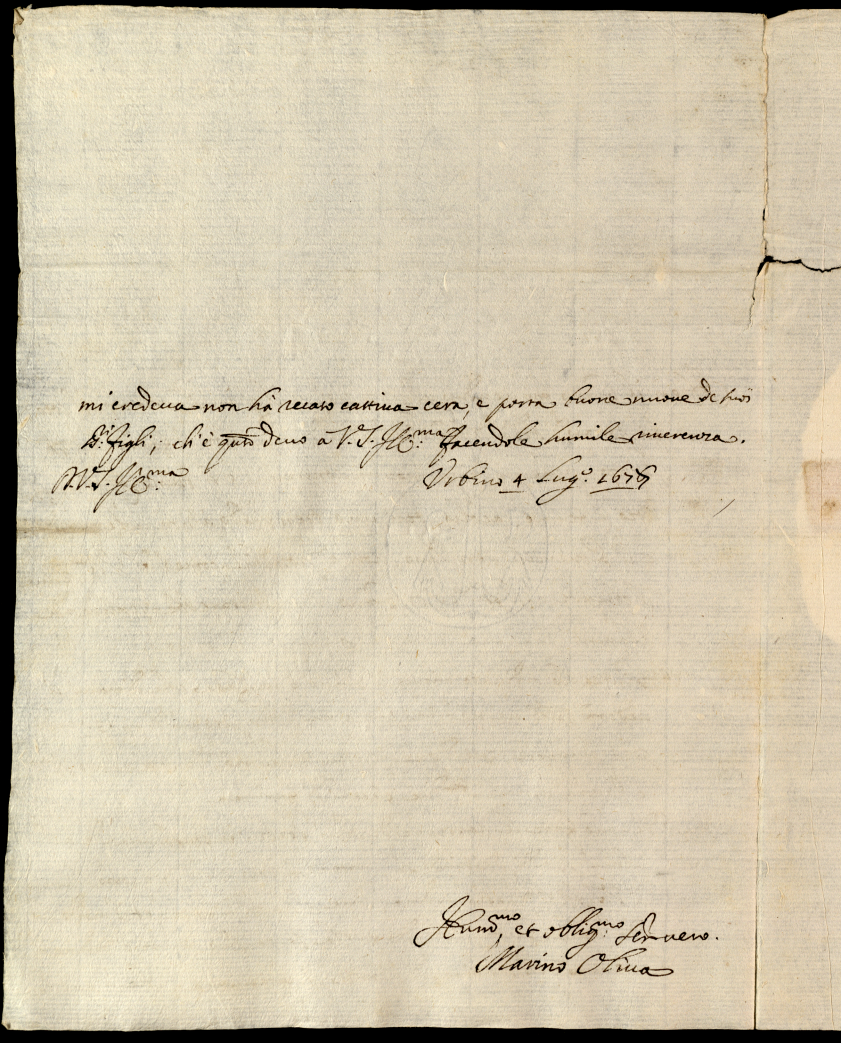 mi credeua non hà recato cattiua cera, e porta buone nuoue de suoi
SS.ri figli, ch'è q.nto deuo a V.S. Ill.ma facendole humile riuerenza.
D. V.S. Ill.ma Vrbino 4 Lug.o 1676
Hum.mo, et oblig.mo ser.r uero.
Marino Oliua